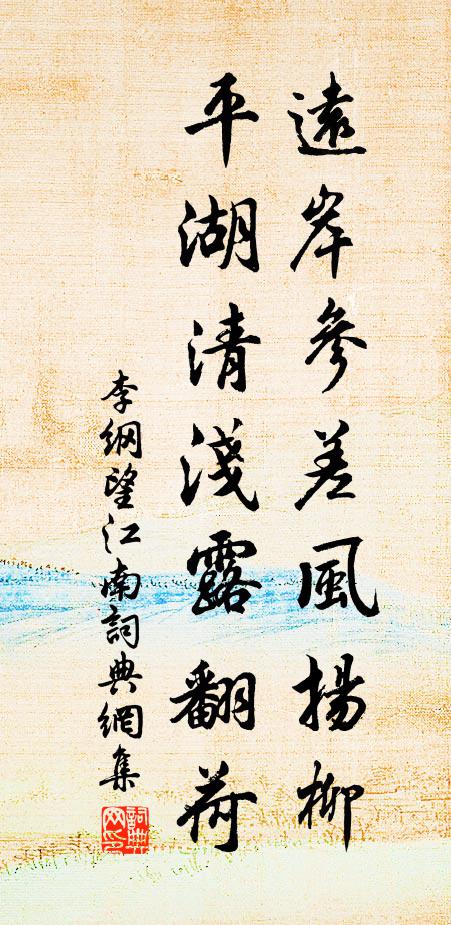 遠岸參差風揚柳
平湖清淺露翻荷
李綱望江南詞典網集
詞典网印